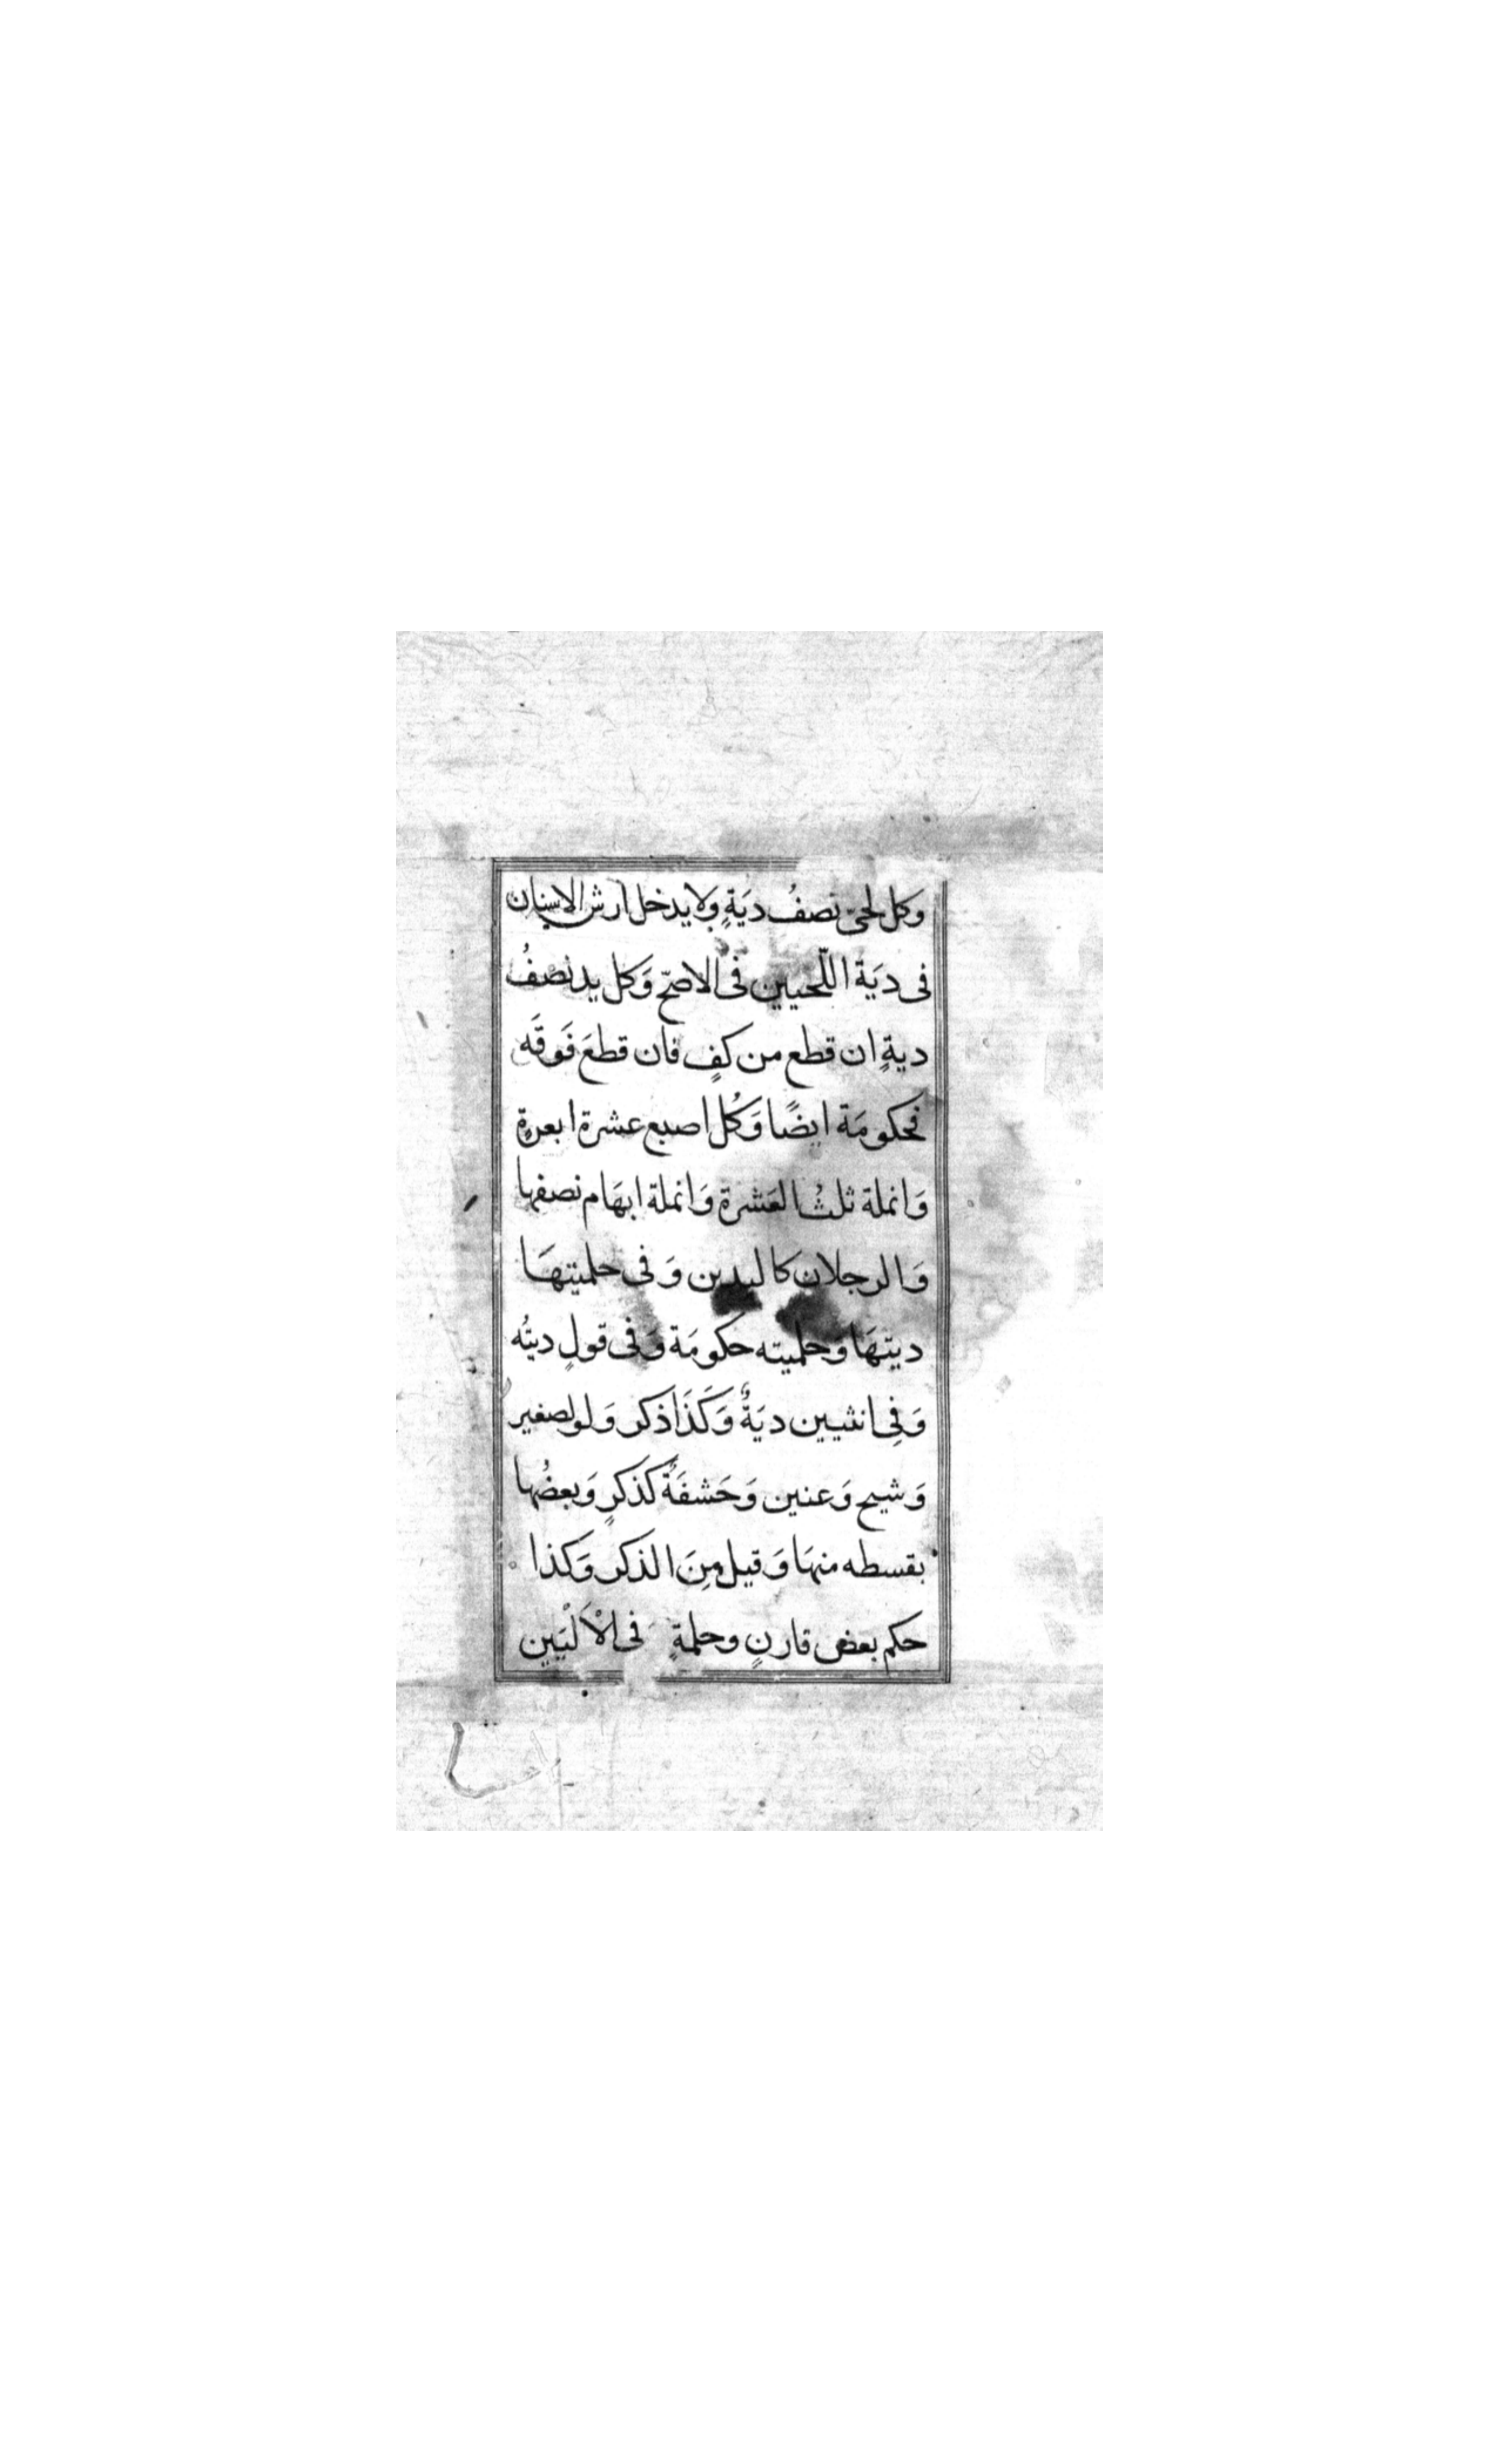 وكل لحىّ نصفُ ديَةٍ ولا يدخل ارش الاسنان
فى ديَة اللّحيين فى الاصحّ وَكل يد نصفُ
ديةٍ ان قطع من كفٍ فان قطعَ فَوقَه
فحكومَة ايضًا وَكُل اصبع عشرة ابعرةٍ
وَانملة ثلثُ العَشرة وَانملة ابهَام نصفها
وَالرجلان كاليدين وَفى حلمتيهَا
ديتهَا وحلمتيه حكومَة وَفى قولٍ ديتُه
وَفِى انثيين ديَةٌ وَكَذَا ذكر وَلو لصغير
وَشيح وَعنين وَحَشفَةٌ كذكرٍ وَبعضُها
بقسطه منهَا وَقيل مِنَ الذكر وَكذا
حكم بعض قارنٍ وحلمةٍ فى الْاَلْيَيَين